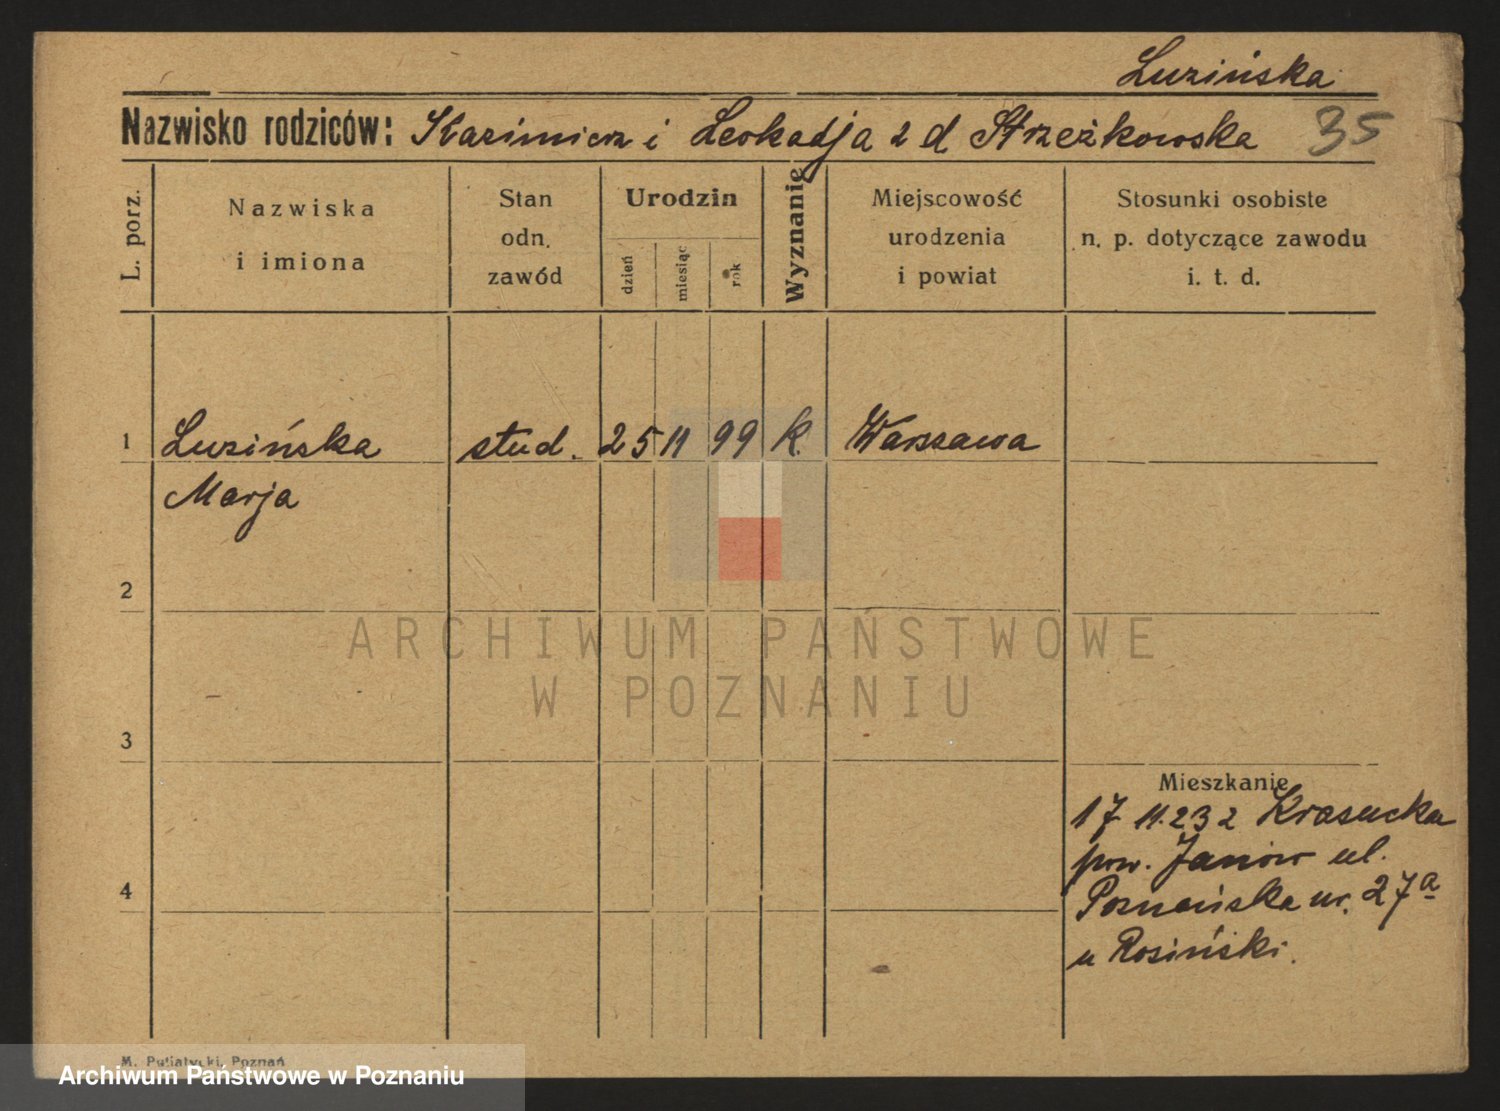 Luzińska
Nazwisko rodziców: Kazimierz i Leokadja z d Strzeżkowska 35
L. porz.
Nazwiska
i imiona
Stan
odn.
zawód
Urodzin
dzień
miesiąc
rok
Wyznanie
Miejscowość
urodzenia
i powiat
Stosunki osobiste
n. p. dotyczące zawodu
i. t. d.
1 Luzińska stud. 25 11 99 k. Warszawa
Marja
2
ARCHIWUM PAŃSTWOWE
W POZNANIU
3
Mieszkanie
17 11.232 Krasucka
pow. Janów ul.
4
Poznańska nr. 27a
u Rosiński.
M. Putiatycki, Poznań
Archiwum Państwowe w Poznaniu